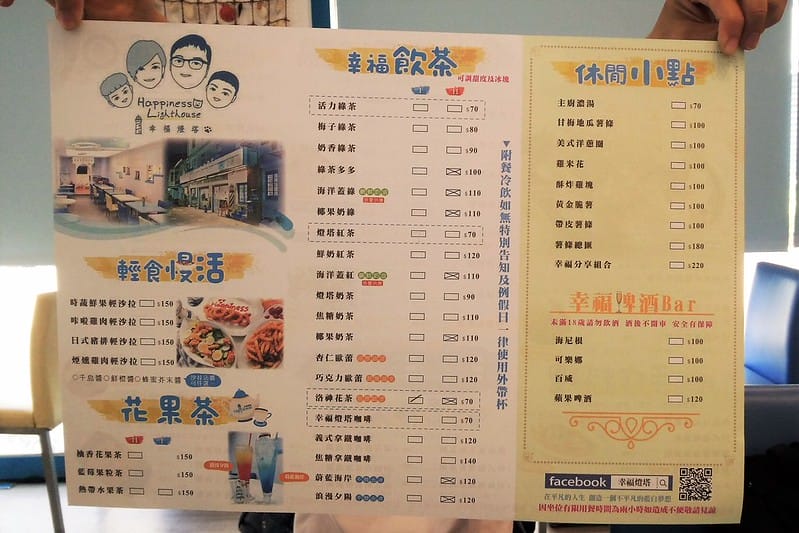 Happiness
Lighthouse
幸福燈塔
輕食慢活
時蔬鮮果輕沙拉 $150
咔啦雞肉輕沙拉 $150
日式豬排輕沙拉 $150
煙燻雞肉輕沙拉 $150
○千島醬 ○鮮橙醬 ○蜂蜜芥末醬
花果茶
柚香花果茶 $150
藍莓果粒茶 $150
熱帶水果茶 $150
幸福飲茶
可調甜度及冰塊
活力綠茶 $70
梅子綠茶 $80
奶香綠茶 $90
綠茶多多 $100
海洋蓋綠 $110
椰果奶綠 $110
燈塔紅茶 $70
鮮奶紅茶 $120
海洋蓋紅 $110
燈塔奶茶 $90
焦糖奶茶 $100
椰果奶茶 $110
杏仁歐蕾 $120
巧克力歐蕾 $120
洛神花茶 $70
幸福燈塔咖啡 $70
義式拿鐵咖啡 $120
焦糖拿鐵咖啡 $140
蔚藍海岸 $120
浪漫夕陽 $120
▼附餐冷飲如無特別告知及例假日一律使用外帶杯
休閒小點
主廚濃湯 $70
甘梅地瓜薯條 $100
美式洋蔥圈 $100
雞米花 $100
酥炸雞塊 $100
黃金脆薯 $100
帶皮薯條 $100
薯條總匯 $180
幸福分享組合 $220
幸福啤酒Bar
未滿18歲請勿飲酒 酒後不開車 安全有保障
海尼根 $100
可樂娜 $100
百威 $100
蘋果啤酒 $120
facebook 幸福燈塔
在平凡的人生 創造一個不平凡的藍白夢想
因坐位有限用餐時間為兩小時如造成不便敬請見諒